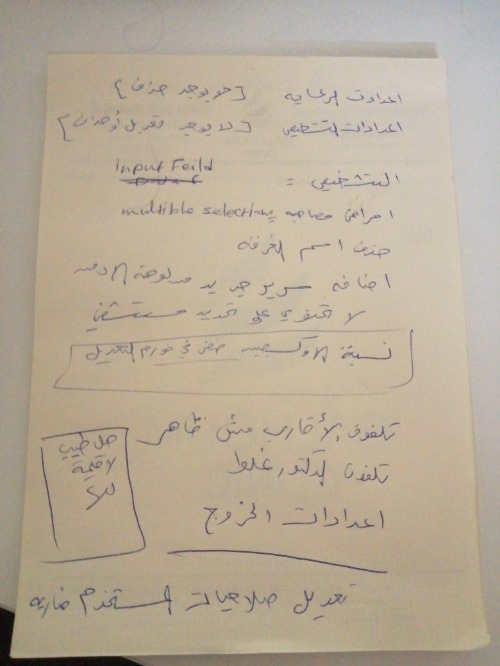 اعدادات الرعايه [لا يوجد حذف]
اعدادات التشخيص [لا يوجد تعديل أو حذف]
Input Feild
التشخيص =
امراض مصاحبه multible selection
حذف اسم الغرفه
اضافه سرير جديد
لا تحتوي علي تحديد مستشفي
نسبة الاوكسجين صفر في فورم التعديل
تلفون الأقارب مش ظاهر
تلفون الدكتور غلط
اعدادات الخروج
تعديل صلاحيات المستخدم ضاربه